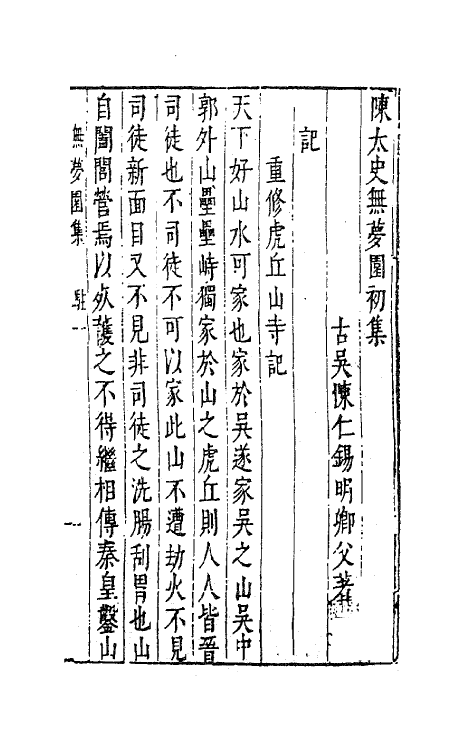 陳太史無夢園初集
古吳陳仁錫明卿父著
記
重修虎丘山寺記
天下好山水可家也家於吳遂家吳之山吳中
郭外山壘壘峙獨家於山之虎丘則人人皆晉
司徒也不司徒不可以家此山不遭劫火不見
司徒新面目又不見非司徒之洗腸刮胃也山
自闔閭營焉以𠩄護之不待繼相傳秦皇鑿山
無夢園集 駐一